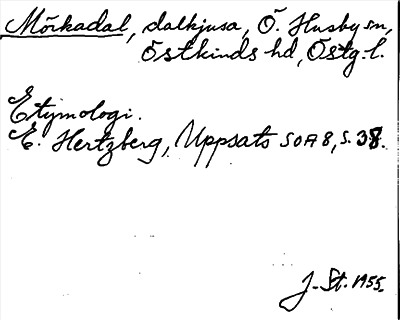 Mörkadal, dalkjusa, Ö. Husby sn,
Östkinds hd, Östg. l.
Etymologi.
E. Hertzberg, Uppsats SOA 8, s. 38.
J. St. 1955.